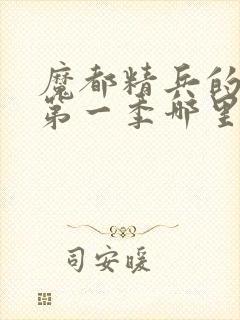 魔都精兵的
第一季哪里
司安暖